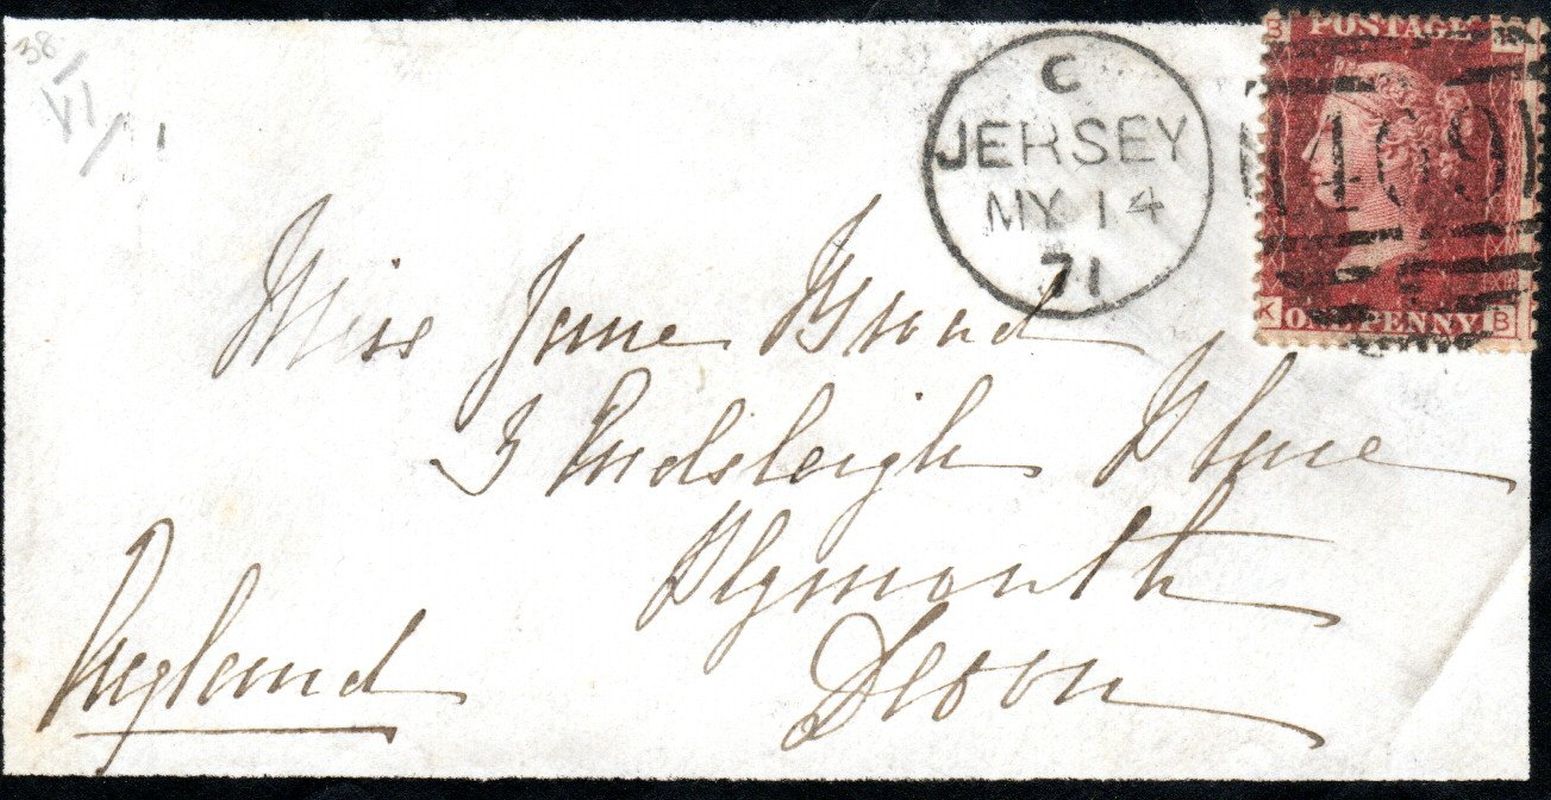 38/
VI/
C
JERSEY
MY 14
71
B POSTAGE K
409
K ONE PENNY B
Miss Jane Broad
3 Endsleigh Place
Plymouth
Devon
England